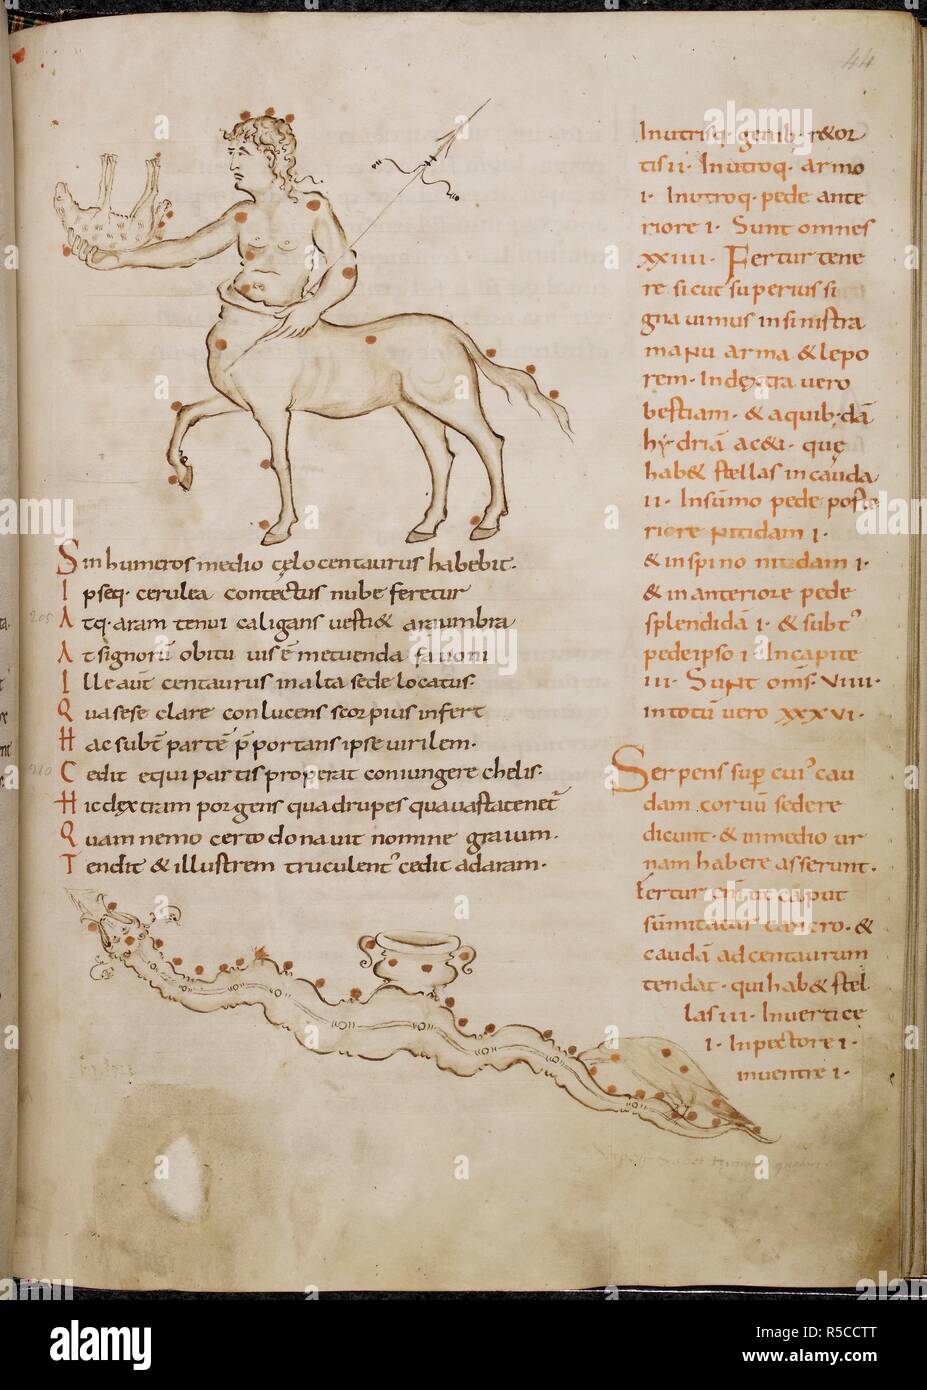 44
S in humeros medio cęlo centaurus habebit·
I pseq· cerulea contectus nube feretur
A tq· aram tenui caligans uesti& arumbra
A t signorū obitu uis ē metuenda fauoni
I lle aūt centaurus in alta sede locatus·
Q ua sese clare conlucens scorpius infert
H ac subt partē p̄portans ipse uirilem·
C edit equi partis properat coniungere chelis·
H ic dęxtram porgens quadrupes qua uasta tenet̄
Q uam nemo certo donauit nomine graium·
T endit & illustrem truculent' cedit ad aram·
In utrisq· genib· r&or
tis ii· In utroq· armo
i· In utroq· pede ante
riore i· Sunt omnes
xxiiii· Fertur tene
re sicut superius si
gnauimus in sinistra
manu arma & lepo
rem· In dęxtra uero
bestiam· & a quib; dā
hydriam ac&i· quę
hab& stellas in cauda
ii· In sūmo pede poste
riore nitidam i·
& in spino nitidam i·
& in anteriore pede
splendidā i· & subt'
pede ipso i· In capite
iii· Sunt om̄s· viiii·
in totū uero xxxvi·
Serpens sup cui' cau
dam coruū sedere
dicunt· & in medio ur
nam habere asserunt·
Fertur ut caput
sūmitatis cancro· &
caudā ad centaurum
tendat· qui hab& stel
las iii· In uertice
i· In pectore i·
in uentre i·
205
210
alamy
Image ID: R5CCTT
www.alamy.com